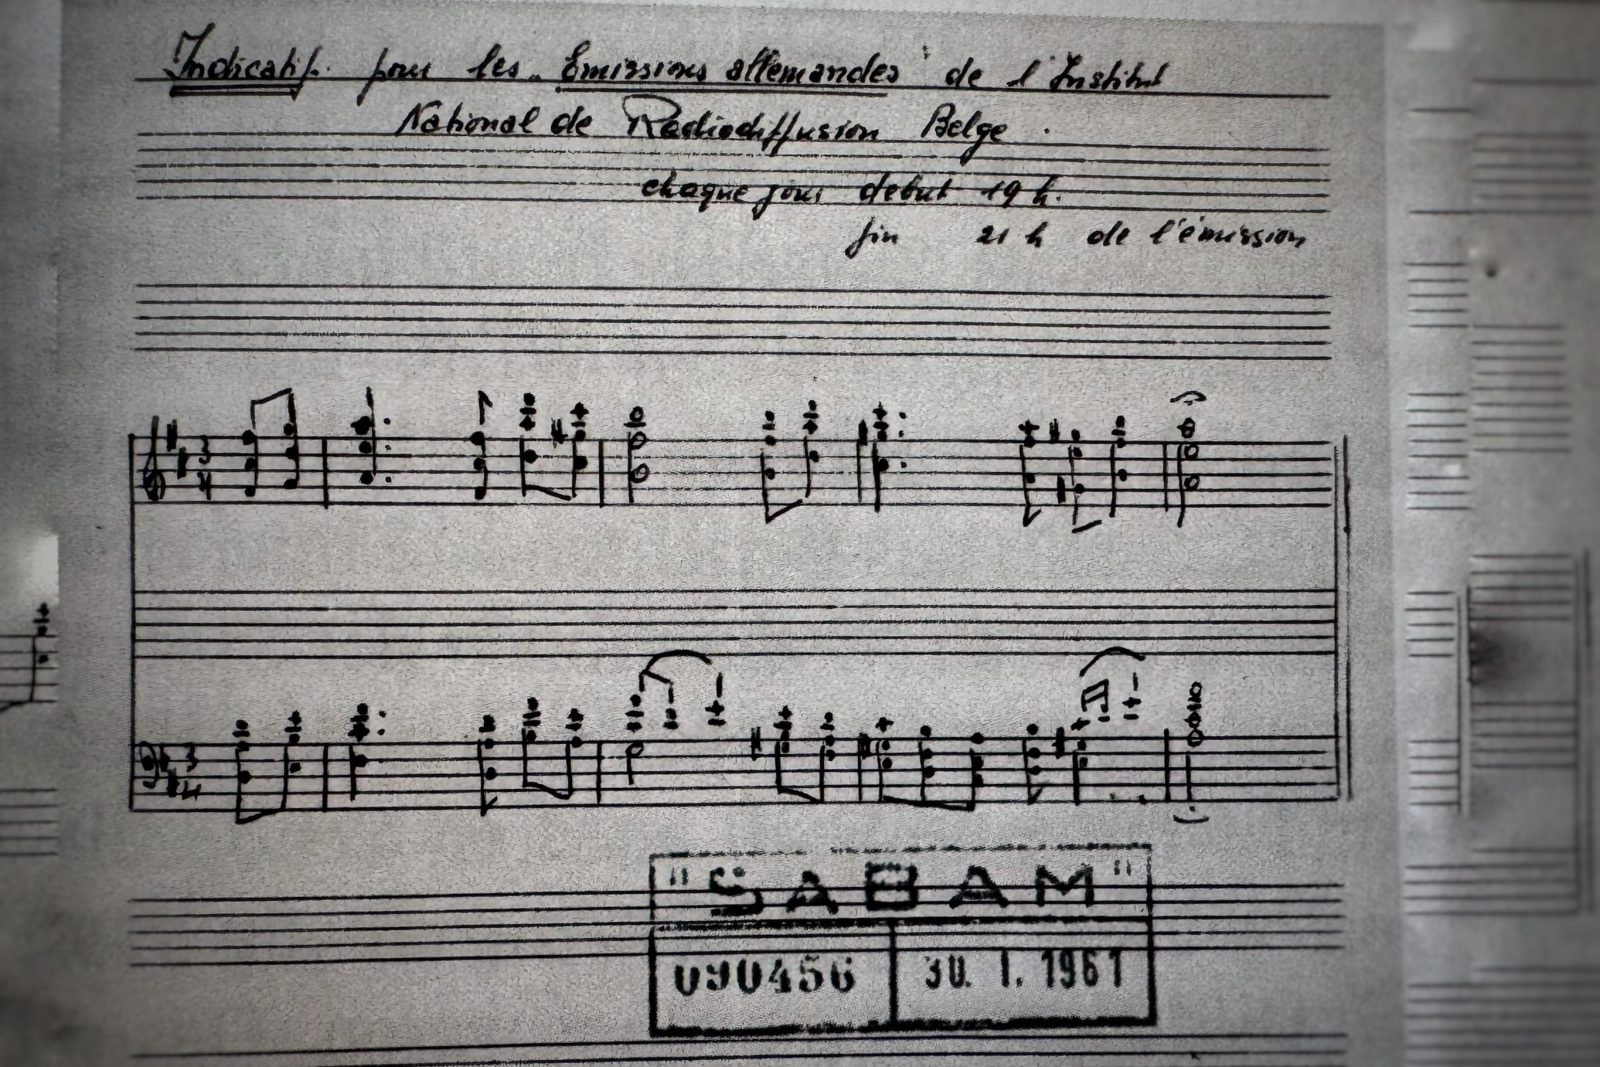 Indicatif. pour les "Emissions allemandes" de l'Institut
National de Radiodiffusion Belge.
chaque jour debut 19 h.
fin 21 h de l'émission
3
4
3
4
"SABAM"
090456 30. 1. 1961